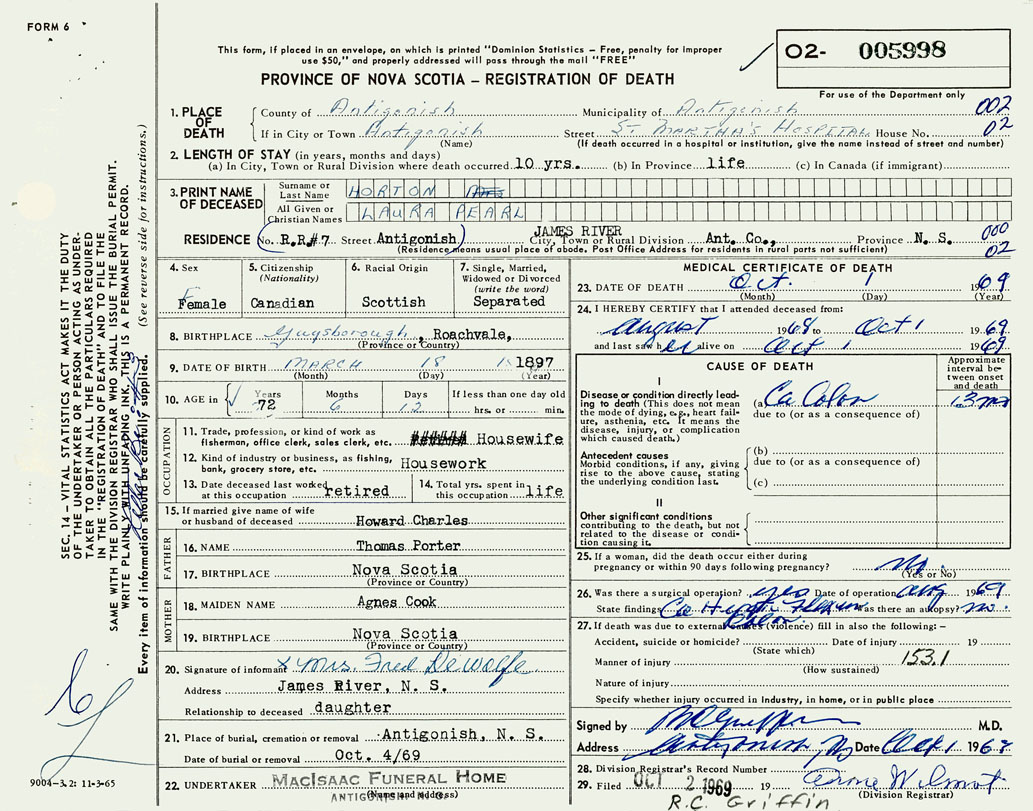 FORM 6
This form, if placed in an envelope, on which is printed "Dominion Statistics – Free, penalty for improper
use $50," and properly addressed will pass through the mail "FREE"
PROVINCE OF NOVA SCOTIA – REGISTRATION OF DEATH
02- 005998
For use of the Department only
1. PLACE OF DEATH County of Antigonish Municipality of Antigonish 002
If in City or Town Antigonish Street St. MARTHA'S HOSPITAL House No. 02
(Name) (If death occurred in a hospital or institution, give the name instead of street and number)
2. LENGTH OF STAY (in years, months and days)
(a) In City, Town or Rural Division where death occurred 10 yrs. (b) In Province life (c) In Canada (if immigrant)
3. PRINT NAME OF DECEASED
Surname or Last Name HORTON
All Given or Christian Names LAURA PEARL
JAMES RIVER 000
RESIDENCE (No. R.R.#7 Street Antigonish) City, Town or Rural Division Ant. Co., Province N. S.
(Residence means usual place of abode. Post Office Address for residents in rural parts not sufficient) 02
4. Sex Female
5. Citizenship (Nationality) Canadian
6. Racial Origin Scottish
7. Single, Married, Widowed or Divorced (write the word) Separated
8. BIRTHPLACE Guysborough, Roachvale,
(Province or Country)
9. DATE OF BIRTH MARCH 18 1897
(Month) (Day) (Year)
10. AGE in Years 72 Months 6 Days 12 If less than one day old hrs. or min.
OCCUPATION
11. Trade, profession, or kind of work as fisherman, office clerk, sales clerk, etc. Housewife
12. Kind of industry or business, as fishing, bank, grocery store, etc. Housework
13. Date deceased last worked at this occupation retired
14. Total yrs. spent in this occupation life
15. If married give name of wife or husband of deceased Howard Charles
FATHER
16. NAME Thomas Porter
17. BIRTHPLACE Nova Scotia
(Province or Country)
MOTHER
18. MAIDEN NAME Agnes Cook
19. BIRTHPLACE Nova Scotia
(Province or Country)
20. Signature of informant X Mrs. Fred DeWolfe
Address James River, N. S.
Relationship to deceased daughter
21. Place of burial, cremation or removal Antigonish, N. S.
Date of burial or removal Oct. 4/69
22. UNDERTAKER MACISAAC FUNERAL HOME
(Name and Address)
MEDICAL CERTIFICATE OF DEATH
23. DATE OF DEATH Oct. 1 1969
(Month) (Day) (Year)
24. I HEREBY CERTIFY that I attended deceased from:
August 1968 to Oct 1 1969
and last saw her alive on Oct 1 1969
CAUSE OF DEATH
Approximate interval between onset and death
I
Disease or condition directly leading to death (This does not mean the mode of dying, e.g., heart failure, asthenia, etc. It means the disease, injury, or complication which caused death.)
(a) Ca Colon 13 mos
due to (or as a consequence of)
Antecedent causes
Morbid conditions, if any, giving rise to the above cause, stating the underlying condition last.
(b)
due to (or as a consequence of)
(c)
II
Other significant conditions
contributing to the death, but not related to the disease or condition causing it.
25. If a woman, did the death occur either during pregnancy or within 90 days following pregnancy? no
(Yes or No)
26. Was there a surgical operation? yes Date of operation Aug 1969
State findings Ca Hepatic Flexure Colon Was there an autopsy? no.
27. If death was due to external causes (violence) fill in also the following: –
Accident, suicide or homicide? Date of injury 19
(State which)
Manner of injury 153.1
(How sustained)
Nature of injury
Specify whether injury occurred in Industry, in home, or in public place
Signed by M.D.
Address Antigonish, NS Date Oct 1 1969
28. Division Registrar's Record Number
29. Filed OCT 2 1969 19 Wilmot
(Division Registrar)
R.C. Griffin
SEC. 14 – VITAL STATISTICS ACT MAKES IT THE DUTY
OF THE UNDERTAKER OR PERSON ACTING AS UNDER-
TAKER TO OBTAIN ALL THE PARTICULARS REQUIRED
IN THE "REGISTRATION OF DEATH" AND TO FILE THE
SAME WITH THE DIVISION REGISTRAR WHO SHALL ISSUE THE BURIAL PERMIT.
WRITE PLAINLY WITH UNFADING INK. THIS IS A PERMANENT RECORD.
Every item of information should be carefully supplied. (See reverse side for instructions.)
9004-3.2: 11-3-65